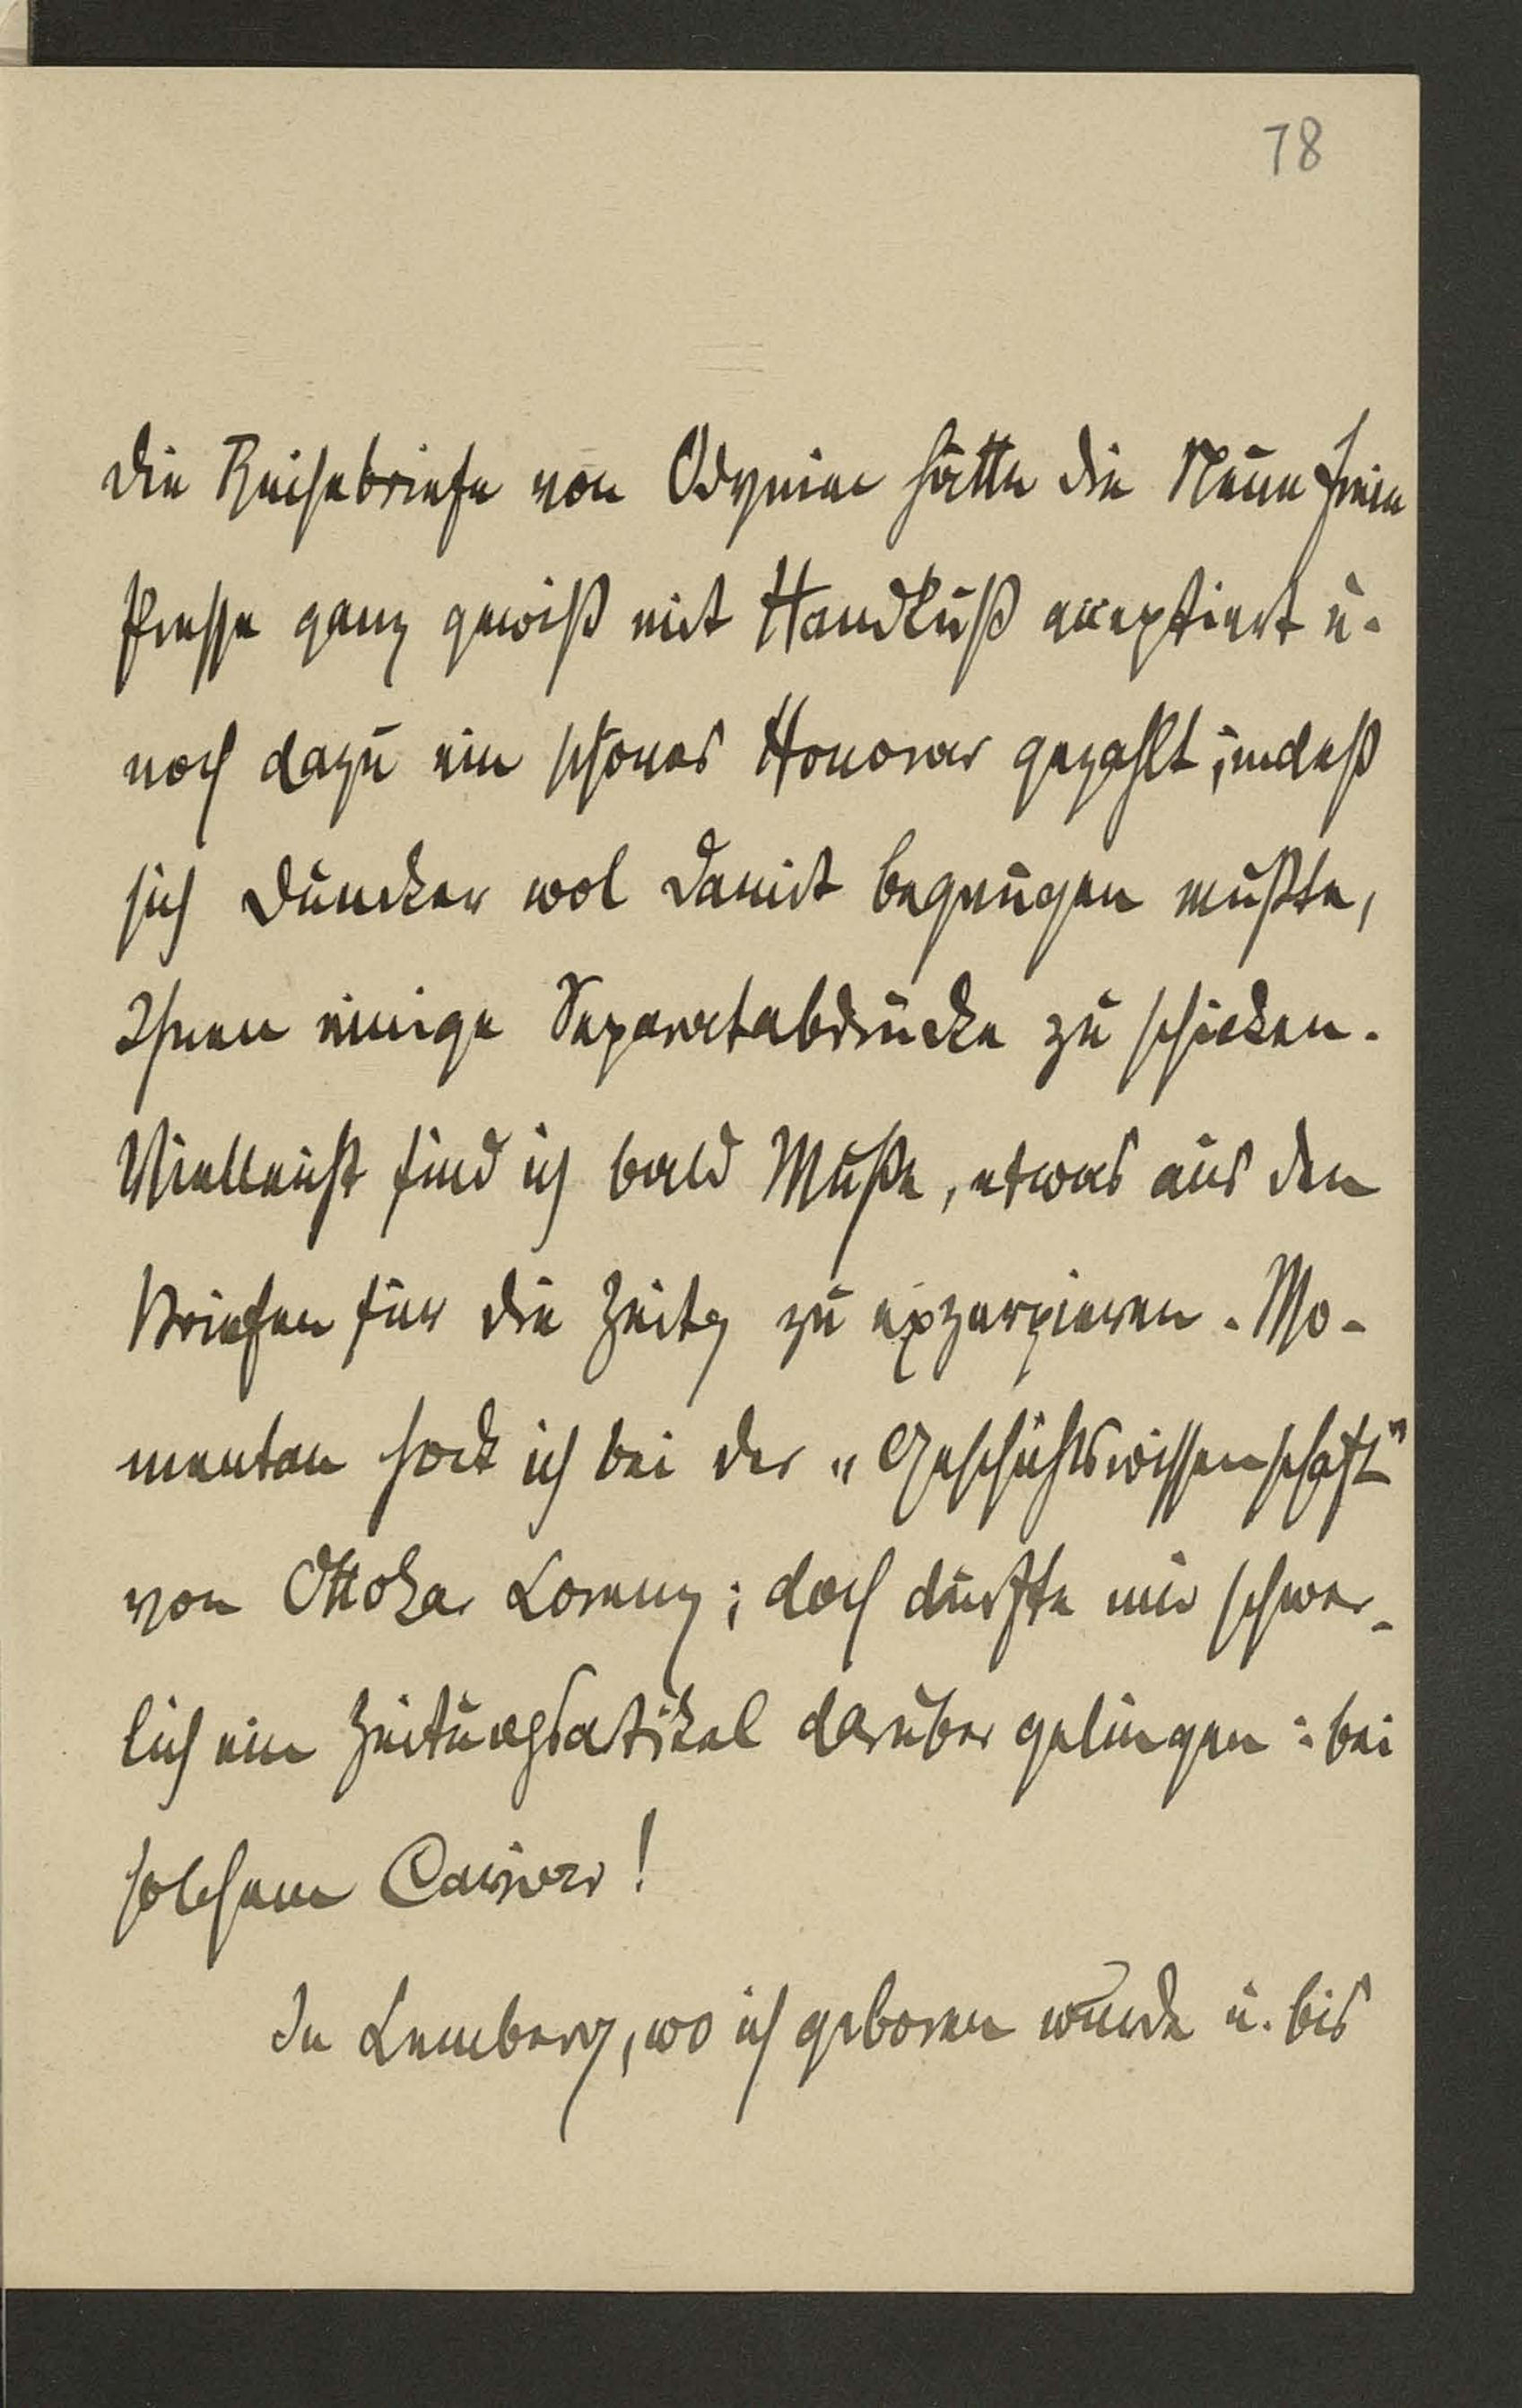 78
Die Reisebriefe von Odyniec hätte die Neue freie
Presse ganz gewiß mit Handkuß acceptiert u.
noch dazu ein schönes Honorar gezahlt; indeß
sich Duncker wol damit begnügen mußte,
Ihnen einige Separatabdrücke zu schicken.
Vielleicht find ich bald Muße, etwas aus den
Briefen für die Zeitg zu exzerpieren. Mo-
mentan hock ich bei der „Geschichtswissenschaft"
von Ottokar Lorenz; doch dürfte mir schwer-
lich ein Zeitungsartikel darüber gelingen: bei
solchem
In Lemberg, wo ich geboren wurde u. bis